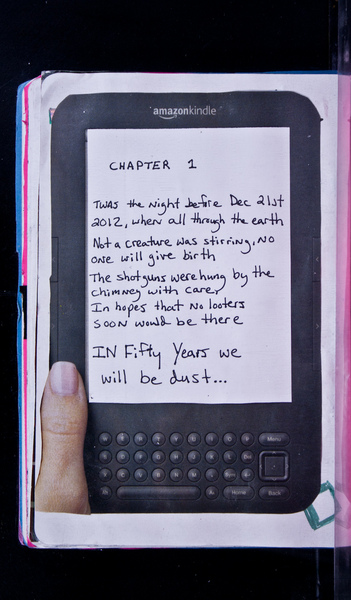 amazonkindle
CHAPTER 1
TWAS the night before Dec 21st
2012, when all through the earth
Not a creature was stirring, NO
one will give birth
The shotguns were hung by the
chimney with care,
In hopes that no looters
SOON would be there
IN Fifty Years we
will be dust...
Menu
Home
Back